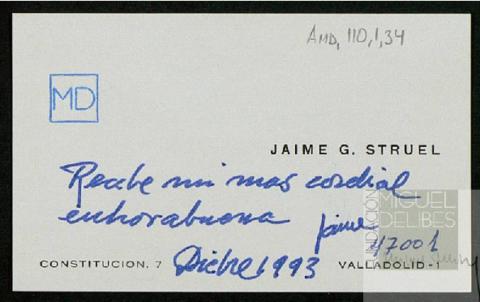 AMD, 110,1,34
MD
JAIME G. STRUEL
Recibe mi mas cordial
enhorabuena
Jaime
47001
CONSTITUCION, 7 Dicbre 1993 VALLADOLID-1
FUNDACIÓN
MIGUEL
DELIBES